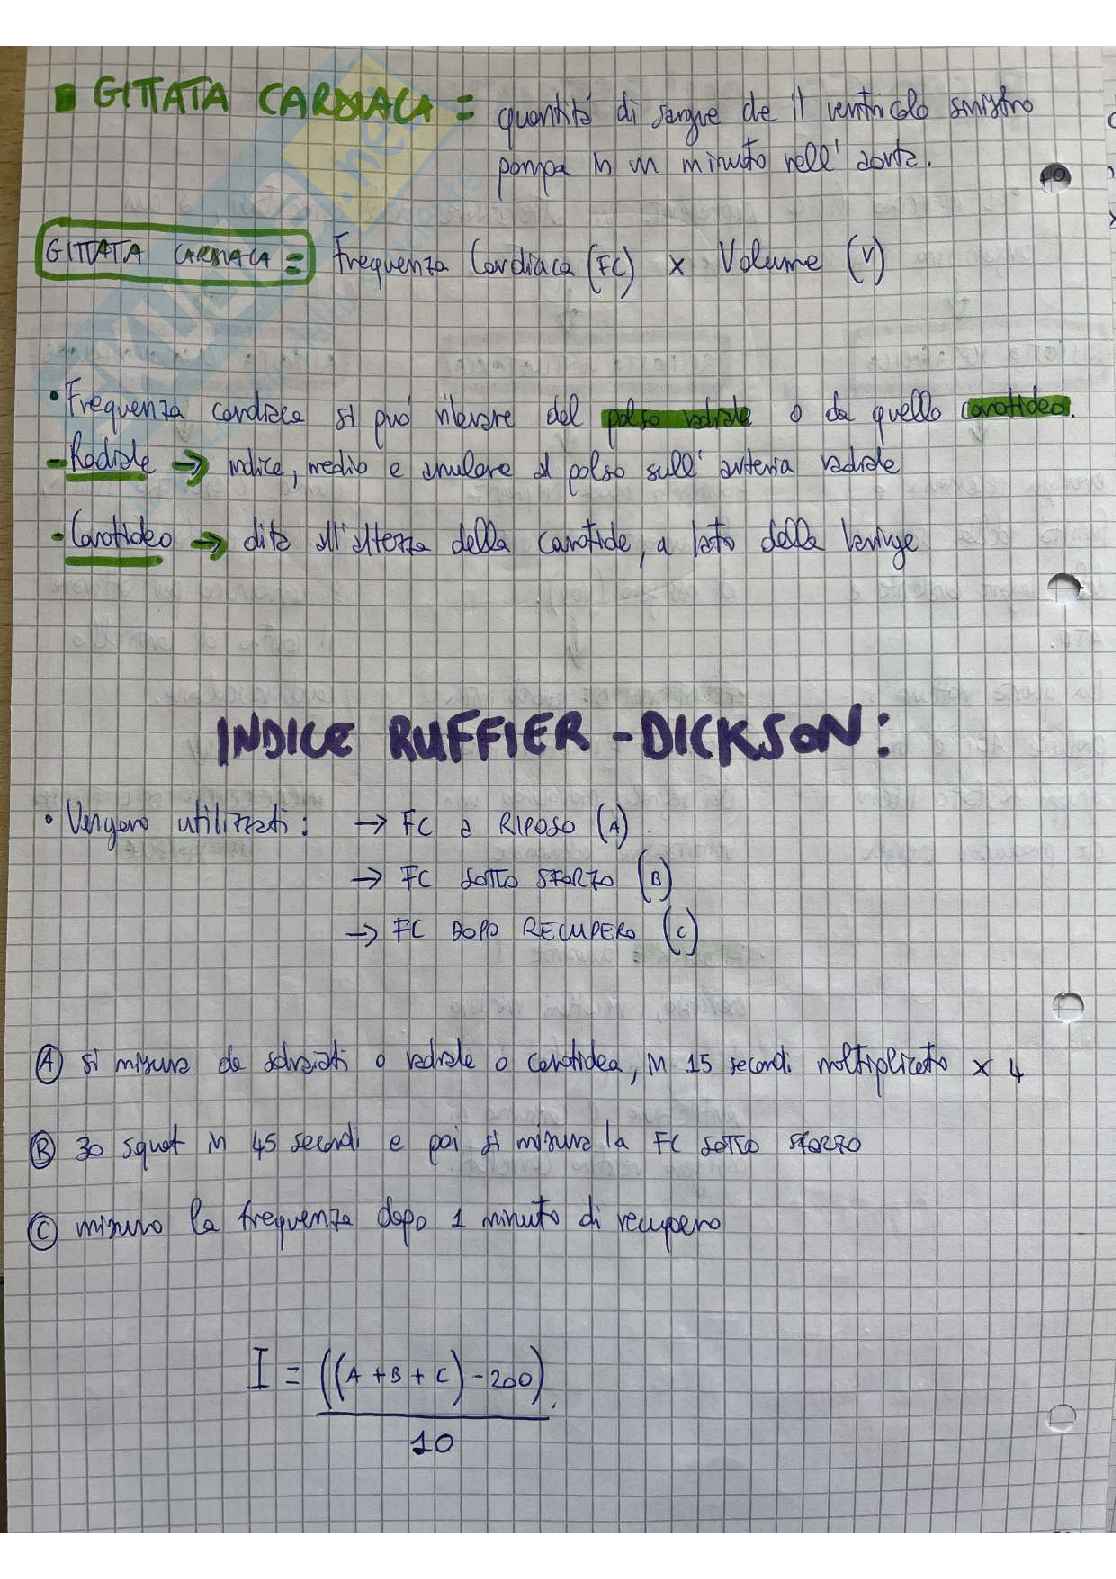 GITTATA CARDIACA = quantità di sangue che il ventricolo sinistro
pompa in un minuto nell'aorta.
GITTATA CARDIACA = Frequenza Cardiaca (FC) x Volume (V)
• Frequenza cardiaca si può rilevare dal polso radiale o da quello carotideo.
- Radiale → indice, medio e anulare al polso sull'arteria radiale
- Carotideo → dita all'altezza della carotide, a lato della laringe
INDICE RUFFIER - DICKSON:
• Vengono utilizzati: → FC a RIPOSO (A)
→ FC SOTTO SFORZO (B)
→ FC DOPO RECUPERO (C)
A si misura da sdraiati o radiale o carotidea, in 15 secondi moltiplicato x 4
B 30 squat in 45 secondi e poi si misura la FC SOTTO SFORZO
C misuro la frequenza dopo 1 minuto di recupero
I = ((A + B + C) - 200)
10